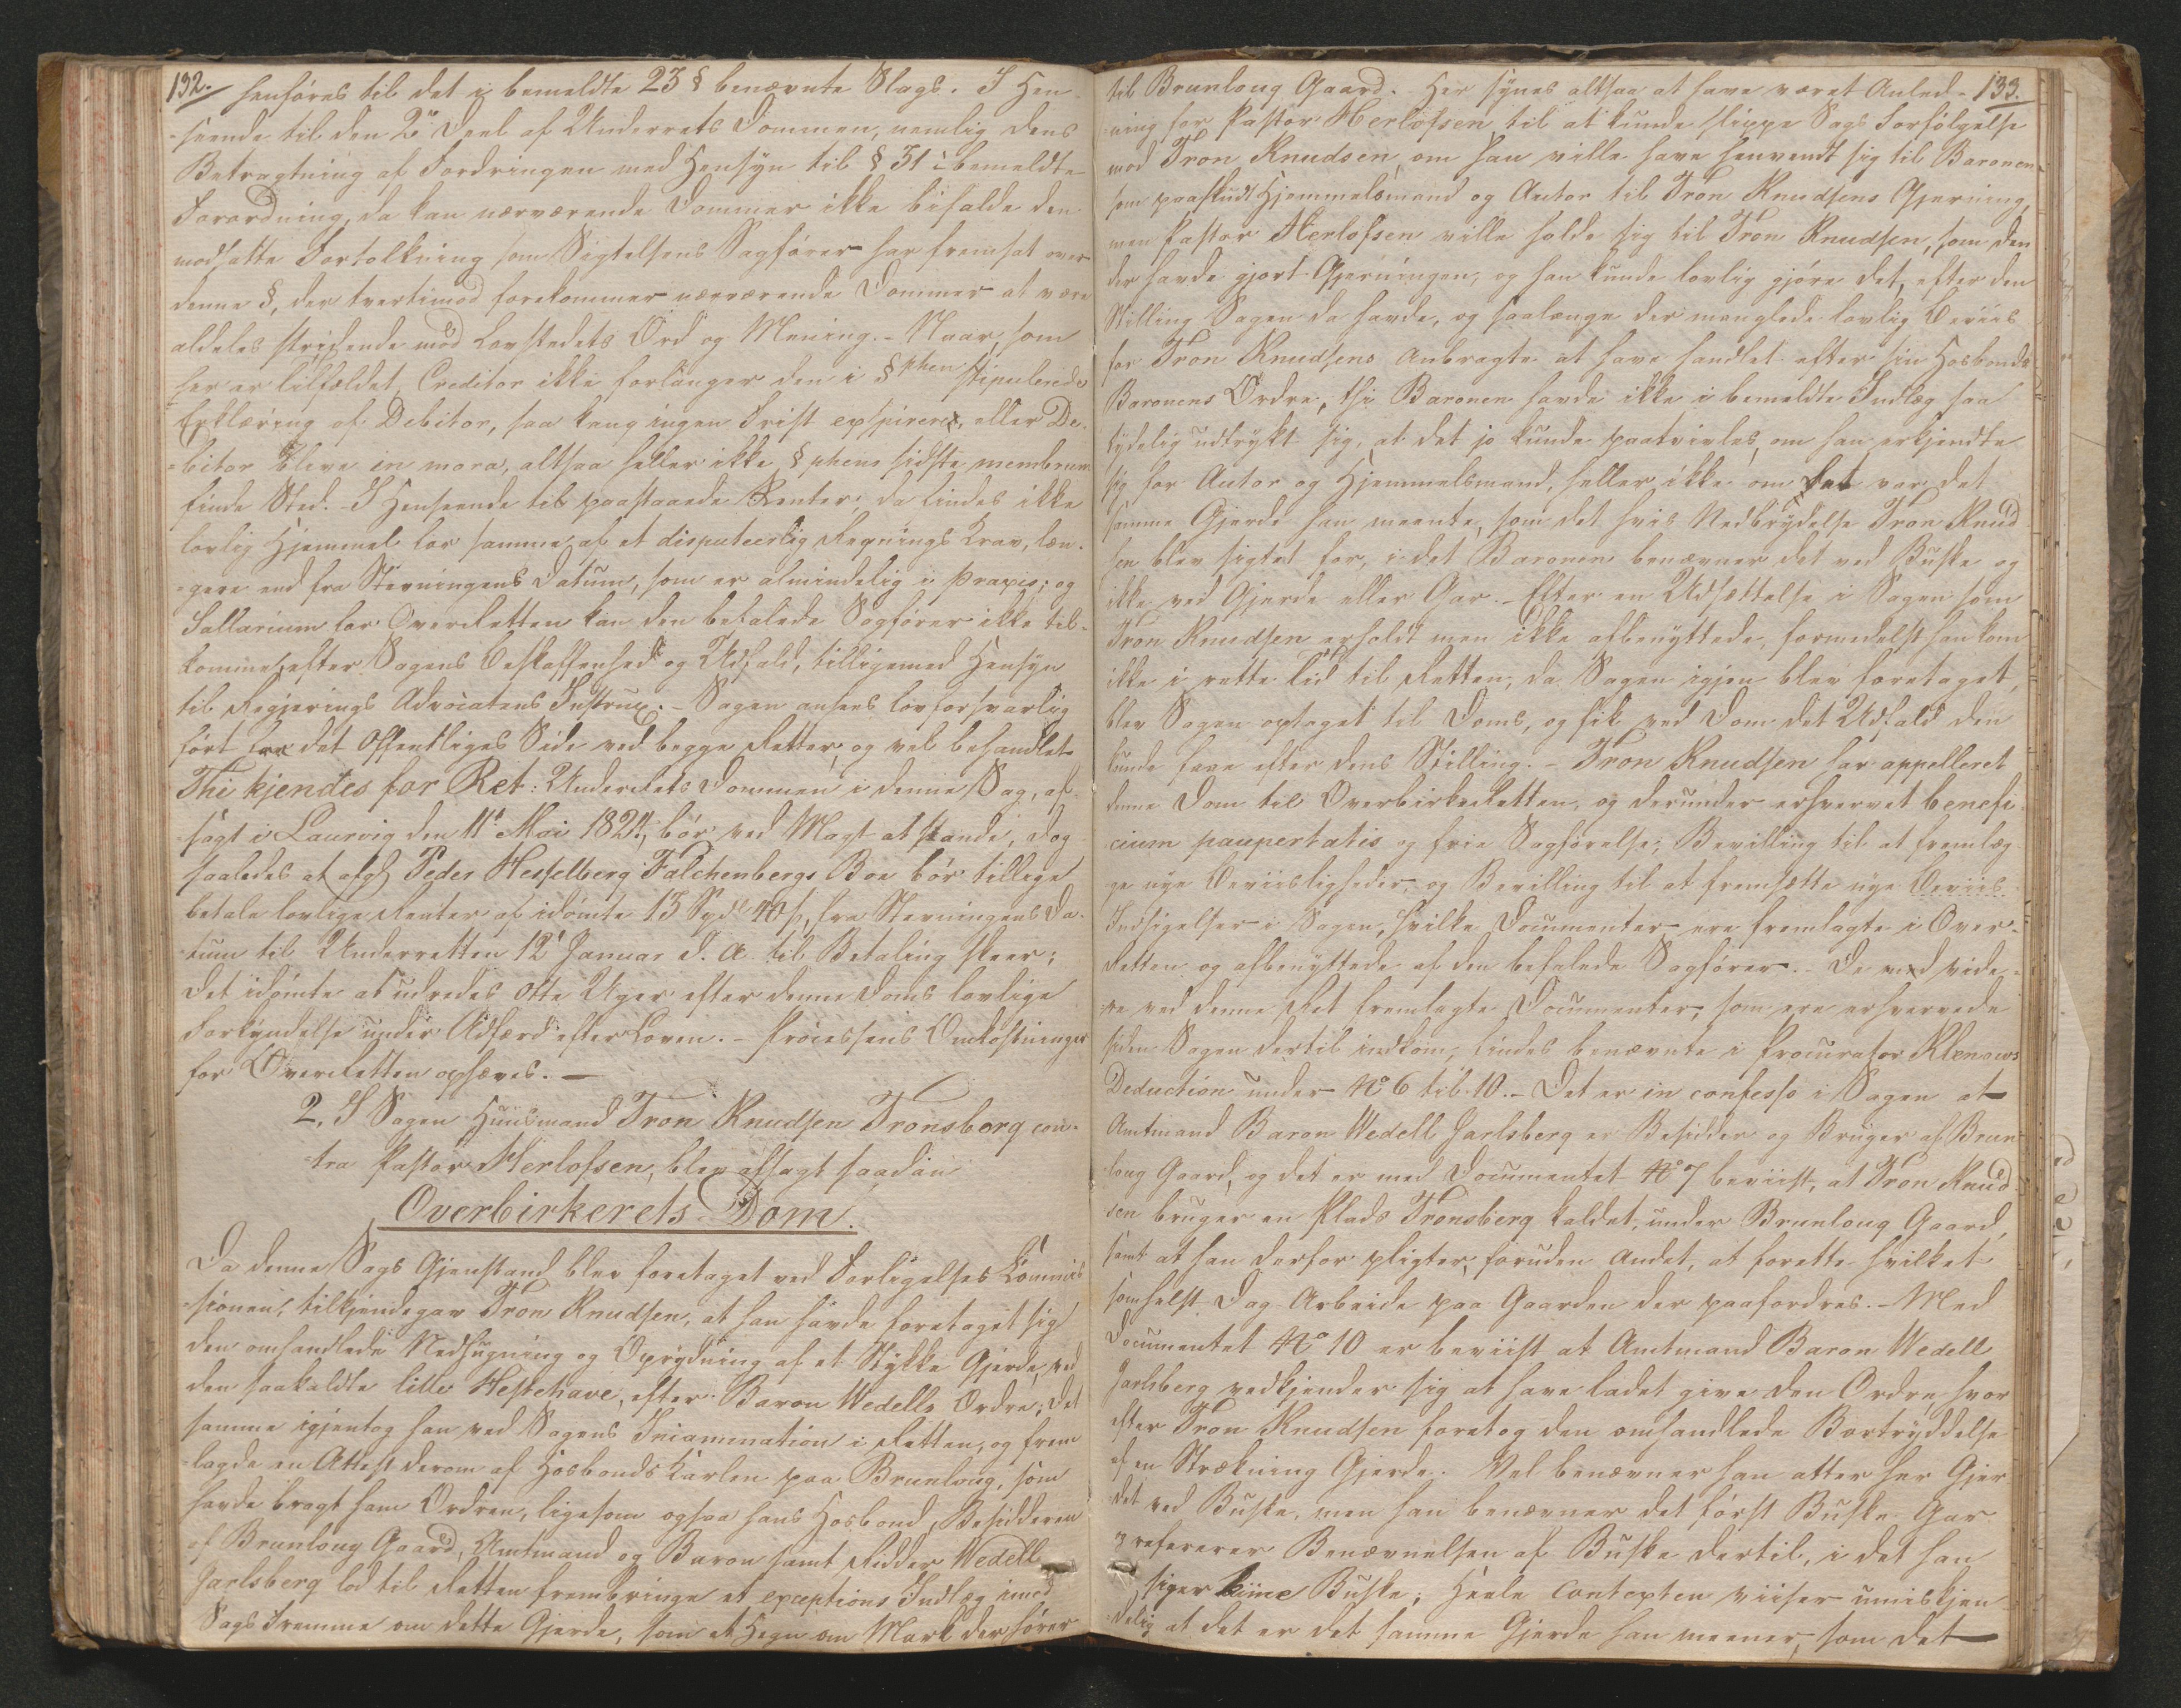 132.
henføres til det i bemeldte 23 § benævnte Slags. I Hen-
=seende til den 2n Deel af Underrets Dommen, nemlig dens
Betragtning af Fordringen med Hensyn til § 31 i bemeldte
Forordning, da kan nærværende Dommer ikke bifalde den
modsatte Fortolkning som Sigtelsens Sagfører har fremsat over
denne §, der tvertimod forekommer nærværende Dommer at være
aldeles stridende mod Lovstedets Ord og Mening. - Naar, som
her er tilfældet, Creditor ikke forlanger den i §phen stipulerede
Erklæring af Debitor, saa kan ingen Frist exspirere, eller De-
=bitor blive in mora, altsaa heller ikke §phens sidste membrum
finde Sted. - I Henseende til paastaaede Renter, da findes ikke
lovlig Hjemmel for samme af et disputeerlig Regnings Krav, læn-
=gere end fra Stevningens Datum, som er almindelig i Praxis; og
Sallarium for OverRetten kan den befalede Sagfører ikke til-
komme, efter Sagens Beskaffenhed og Udfald, tilligemed Hensyn
til Regjerings Advocatens Instrux. - Sagen ansees lovforsvarlig
ført fra det Offentliges Side ved begge Retter, og vel behandlet
Thi kjendes for Ret: UnderRets Dommen i denne Sag, af-
=sagt i Laurvig den 11te Mai 1824, bør ved Magt at stande, dog
saaledes at afg Peder Hesselberg Falchenbergs Boe bør tillige
betale lovlige Renter af idømte 13 Spd 40 s, fra Stevningens Da-
=tum til Underretten 12t Januar d. A. til Betaling skeer;
Det idømte at udredes otte Uger efter denne Doms lovlige
Forkyndelse under Adfærd efter Loven. - Processens Omkostninger
for OverRetten ophæves. -
2, I Sagen Huusmand Tron Knudsen Tronsberg con-
=tra Pastor Herlofsen, blev afsagt saadan
Overbirkerets Dom.
Da denne Sags Gjenstand blev foretaget ved Forligelses Commis
=sionen, tilkjendegav Tron Knudsen, at han havde foretaget sig
den omhandlede Nedhugning og Oprydning af et Stykke Gjerde, ved
den saakaldte lille Hestehave, efter Baron Wedells Ordre; det
samme igjentog han ved Sagens Incammination i Retten, og frem
=lagde en Attest derom af Hosbonds Karlen paa Brunloug, som
havde bragt ham Ordren, ligesom ogsaa hans Hosbond, Besidderen
af Brunloug Gaard, Amtmand og Baron samt Ridder Wedell
Jarlsberg lod til Retten frembringe et exceptions Indlæg imod
Sags Fremme om dette Gjerde, som et Hegn om Mark der hører
133.
til Brunloug Gaard. Her synes altsaa at have været Anled-
=ning for Pastor Herlofsen til at kunde slippe Sags Forfølgelse
mod Tron Knudsen, om han ville have henvendt sig til Baronen
som paaskudt Hjemmelsmand og Autor til Tron Knudsens Gjerning,
men Pastor Herlofsen ville holde sig til Tron Knudsen, som den
der havde gjort Gjerningen, og han kunde lovlig gjøre det, efter den
Stilling Sagen da havde, og saalænge der manglede lovlig Beviis
for Tron Knudsens Anbragte at have handlet efter sin Hosbonds
Baronens Ordre, thi Baronen havde ikke i bemeldte Indlæg saa
tydelig udtrykt sig, at det jo kunde paatvivles, om han erkjendte
sig for Autor og Hjemmelsmand, heller ikke om det var det
samme Gjerde han meente, som det hvis Nedbrydelse Tron Knud
sen blev sigtet for, i det Baronen benævner det ved Buske og
ikke ved Gjerde eller Gar. - Efter en Udsættelse i Sagen som
Tron Knudsen erholdt men ikke afbenyttede, formedelst han kom
ikke i rette Tid til Retten, da Sagen igjen blev foretaget,
blev Sagen optaget til Doms, og fik ved Dom det Udfald den
kunde have efter dens Stilling. - Tron Knudsen har appelleret
denne Dom til OverbirkeRetten, og derunder erhvervet benefi-
cium paupertatis og frie Sagførelse, Bevilling til at fremlæg
ge nye Beviisligheder, og Bevilling til at fremsætte nye Beviis
Indsigelser i Sagen, hvilke Documenter ere fremlagte i Over-
Retten og afbenyttede af den befalede Sagfører. - De ved vide-
=re ved denne Ret fremlagte Documenter, som ere erhvervede
siden Sagen dertil indkom, findes benævnte i Procurator Klenows
Deduction under No 6 til 10. - Det er in confesso i Sagen at
Amtmand Baron Wedell Jarlsberg er Besidder og Bruger af Brun
loug Gaard, og det er med Documentet No 7 beviist, at Tron Knud
sen bruger en Plads Tronsberg kaldet, under Brunloug Gaard,
samt at han derfor pligter, foruden Andet, at forette hvilket
somhelst Dag-Arbeide paa Gaarden der paafordres. - Med
Documentet No 10 er beviist at Amtmand Baron Wedell
Jarlsberg vedkjender sig at have ladet give den Ordre, hvor
efter Tron Knudsen foretog den omhandlede Bortryddelse
af en Strækning Gjerde. Vel benævner han atter her Gjer
=det ved Buske, men han benævner det først Buske-Gar
og refererer Benævnelsen af Buske dertil, i det han
siger Buske; Heele Contexten viiser umiskjen
=delig at det er det samme Gjerde han meener, som det